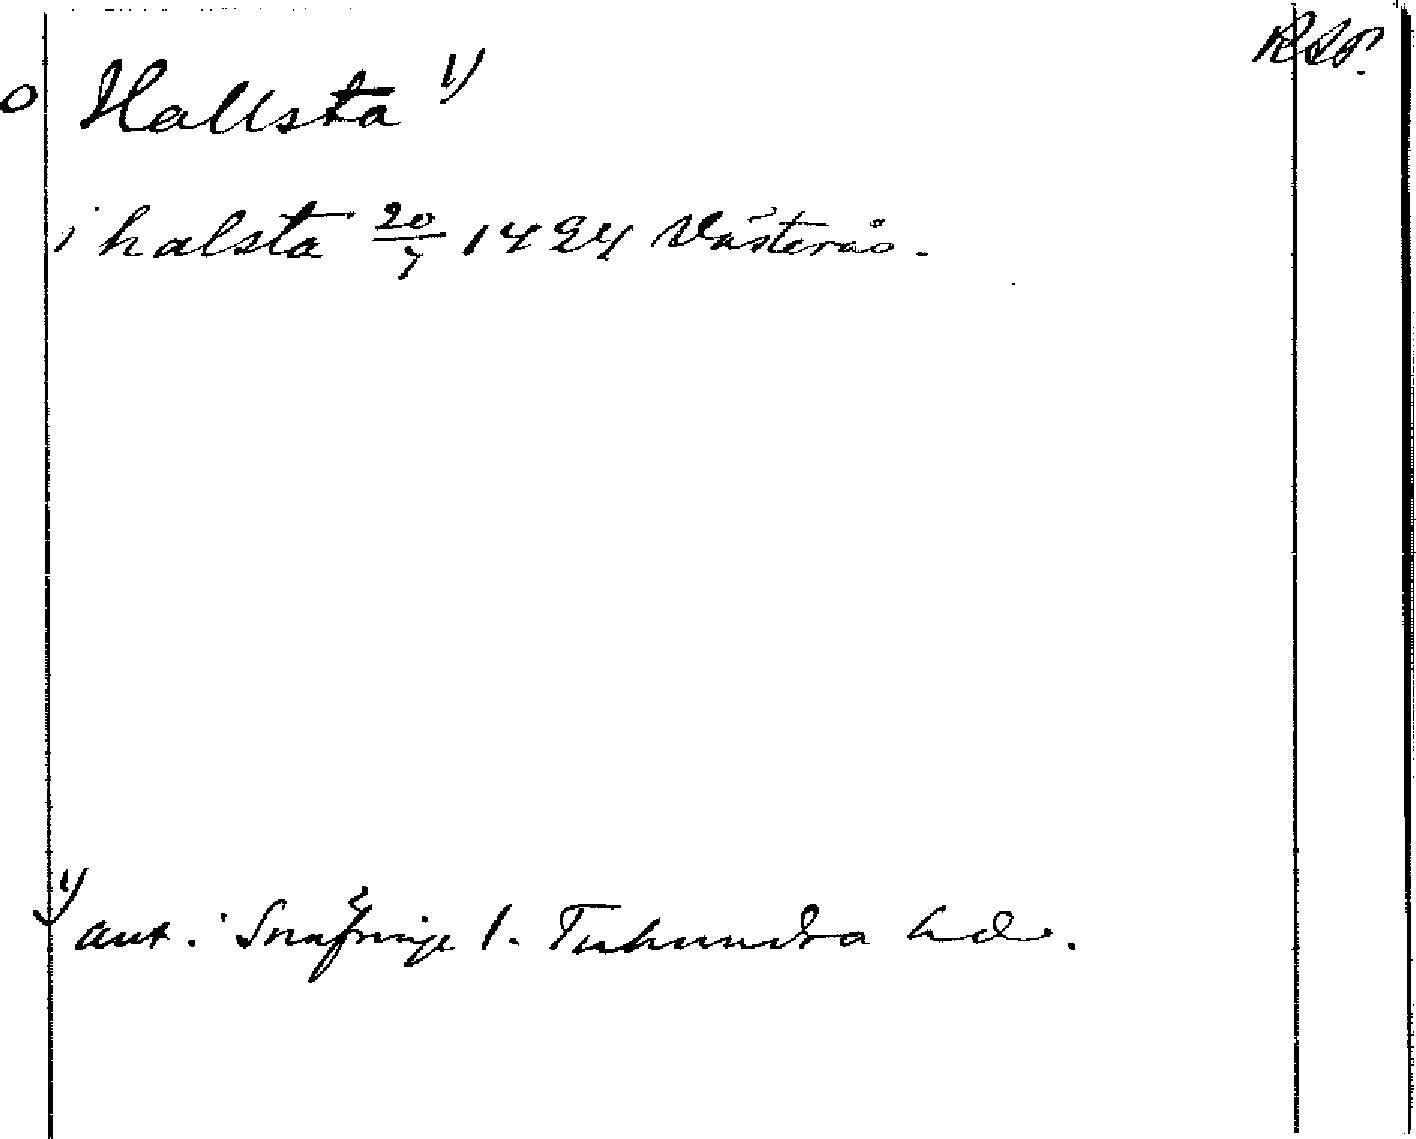 Hallsta 1)
i halsta 20/7 1424 Västerås.
1) ant. i Snäfringe l. Tuhundra hd.